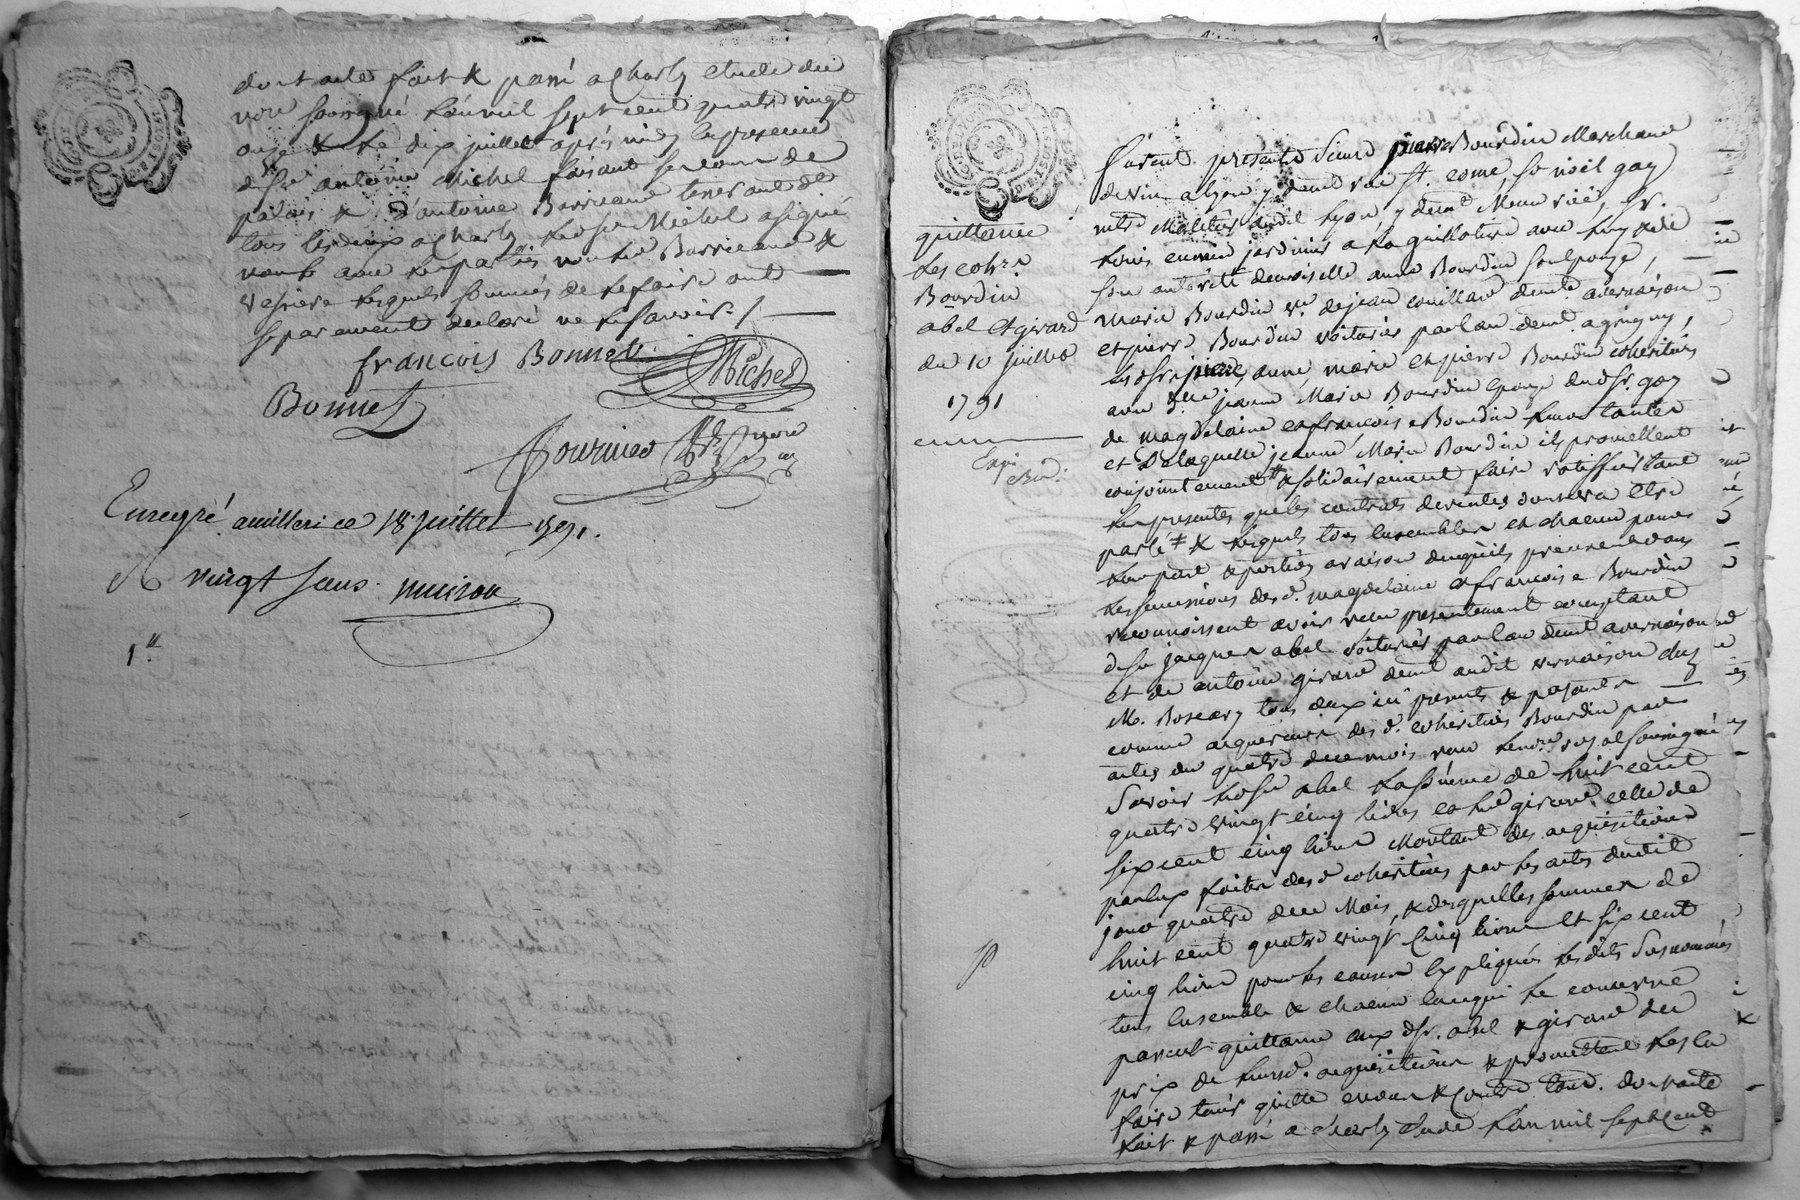 dont acte fait & passé a Charly etude du
no.re soussigné l'an mil sept cent quatre vingt
onze & le dix juillet après midy en presence
de sr antoine Michel faisant se cour de
palais & d'antoine Barrieau
tous les deux a Charly, led sr Michel a signé
non les parties ni led Barrieau &
de ce faire ont
separement declaré ne le savoir ./.
francois Bonnet
Michel
Bonnet
Fournier
Enregré. a milleri ce 18 juillet 1791.
R vingt sous.
1.#
furent presents Sieur pierre Bourdin Marchand
de vin a lyon y demt rue St. come, sr noël gay
audit lyon y demt
louis jardinier a la guillotiere avec luy & de
son autorité demoiselle anne Bourdin son epouze,
marie Bourdin ve. de jean couillard demte. a vernaison
et pierre Bourdin voiturier par eau demt. a grigny,
lesd srs pierre, anne, marie et pierre Bourdin coheritiers
avec d.lle jeanne Marie Bourdin epouze dud sr. gay
de magdelaine et francoise Bourdin leurs tantes
et de laquelle jeanne Marie Bourdin ils promettent
conjointement & solidairement faire ratiffier tant
les presentes que les contrats de ventes dont sera etre
parlé & lesquels tous ensemble et chacun pour
leur part & portion a raison de ce qu'ils prennent dans
les successions desd. magdelaine & francoise Bourdin
reconnoissent avoir reçu presentement comptant
de sr jacques abel voiturier par eau demt a vernaison
et de antoine girard demt audit vernaison chez
M. Boscary tous deux ici presents &
comme acquereurs desd. coheritiers Bourdin par
actes du quatre de ce mois reçu le no.re royal soussigné
Savoir led sr abel la somme de huit cent
quatre vingt cinq livres et led girard celle de
six cent cinq livres Montant des acquisitions
par eux faites desd coheritiers par les actes dudit
jour quatre de ce Mois, & desquelles sommes de
huit cent quatre vingt cinq livres et six cent
cinq livres pour les causes expliquées lesdits susnommés
tous ensemble & chacun en ce qui le concerne
passent quittance aux d sr. abel & girard du
prix de leursd. acquisitions & promettent les en
faire tenir quitte envers & contre tous. dont acte
fait & passé a charly etude l'an mil sept cent
quittance
les cohers
Bourdin
abel et girard
du 10 juillet
1791